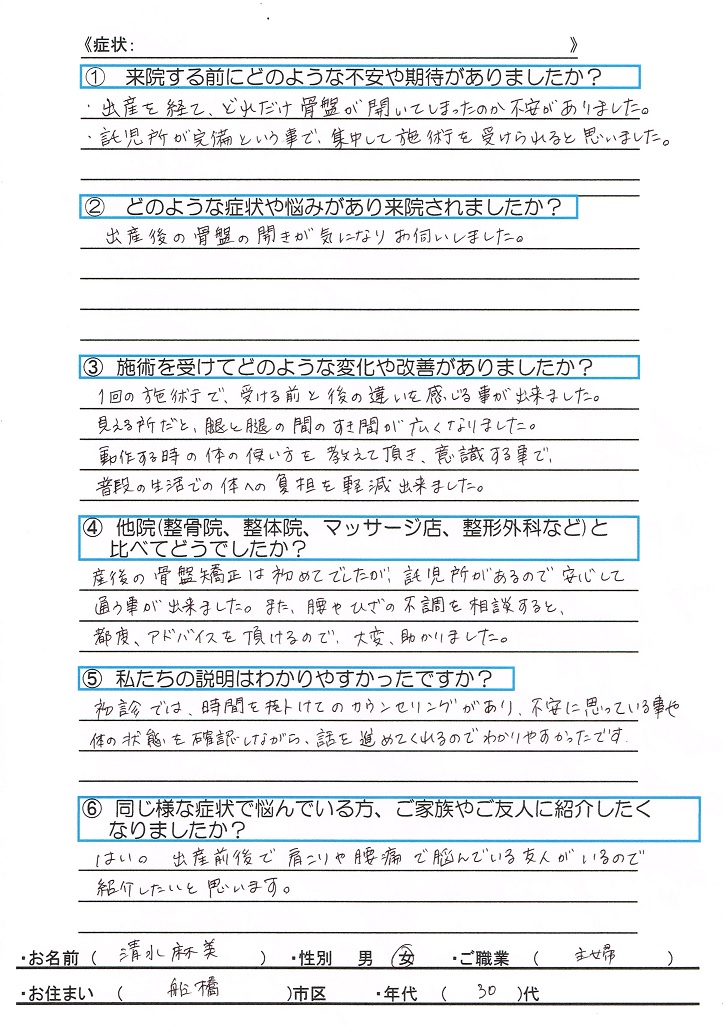 《症状: 》
① 来院する前にどのような不安や期待がありましたか？
・出産を経て、どれだけ骨盤が開いてしまったのか不安がありました。
・託児所が完備という事で、集中して施術を受けられると思いました。
② どのような症状や悩みがあり来院されましたか？
出産後の骨盤の開きが気になりお伺いしました。
③ 施術を受けてどのような変化や改善がありましたか？
1回の施術で、受ける前と後の違いを感じる事が出来ました。
見える所だと、腿と腿の間のすき間が広くなりました。
動作する時の体の使い方を教えて頂き、意識する事で、
普段の生活での体への負担を軽減出来ました。
④ 他院(整骨院、整体院、マッサージ店、整形外科など)と
比べてどうでしたか？
産後の骨盤矯正は初めてでしたが、託児所があるので安心して
通う事が出来ました。また、腰やひざの不調を相談すると、
都度、アドバイスを頂けるので、大変、助かりました。
⑤ 私たちの説明はわかりやすかったですか？
初診では、時間を掛けてのカウンセリングがあり、不安に思っている事や
体の状態を確認しながら、話を進めてくれるのでわかりやすかったです
⑥ 同じ様な症状で悩んでいる方、ご家族やご友人に紹介したく
なりましたか？
はい。 出産前後で肩こりや腰痛で脳んでいる友人がいるので
紹介したいと思います。
・お名前 ( 清水麻美 ) ・性別 男 女 ・ご職業 ( 主婦 )
・お住まい ( 船橋 )市区 ・年代 ( 30 )代